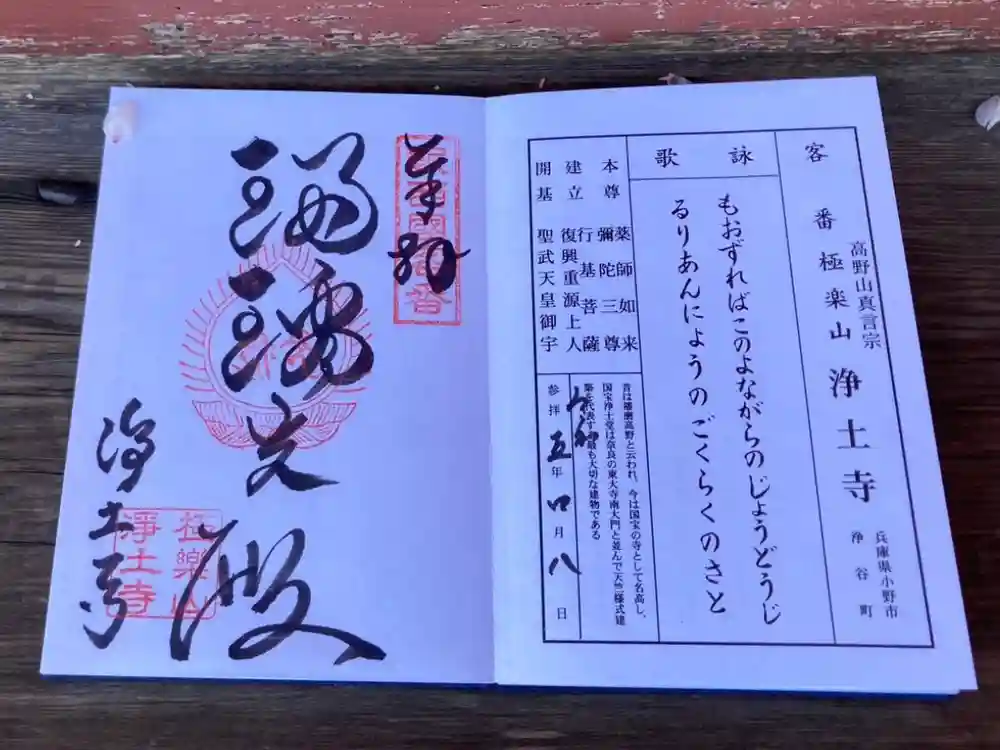 客番 極楽山 浄土寺
高野山真言宗
兵庫県小野市
浄谷町
詠歌
もおずればこのよながらのじょうどうじ
るりあんにょうのごくらくのさと
本尊 薬師如来
彌陀三尊
建立 行基菩薩
復興重源上人
開基 聖武天皇御宇
昔は播磨高野と云われ、今は国宝の寺として名高し、
国宝浄土堂は奈良の東大寺南大門と並んで天竺様式建
築を代表する最も大切な建物である
令和
参拝五年 月八日
奉拜
瑠璃光殿
浄土寺
極樂山
淨土寺